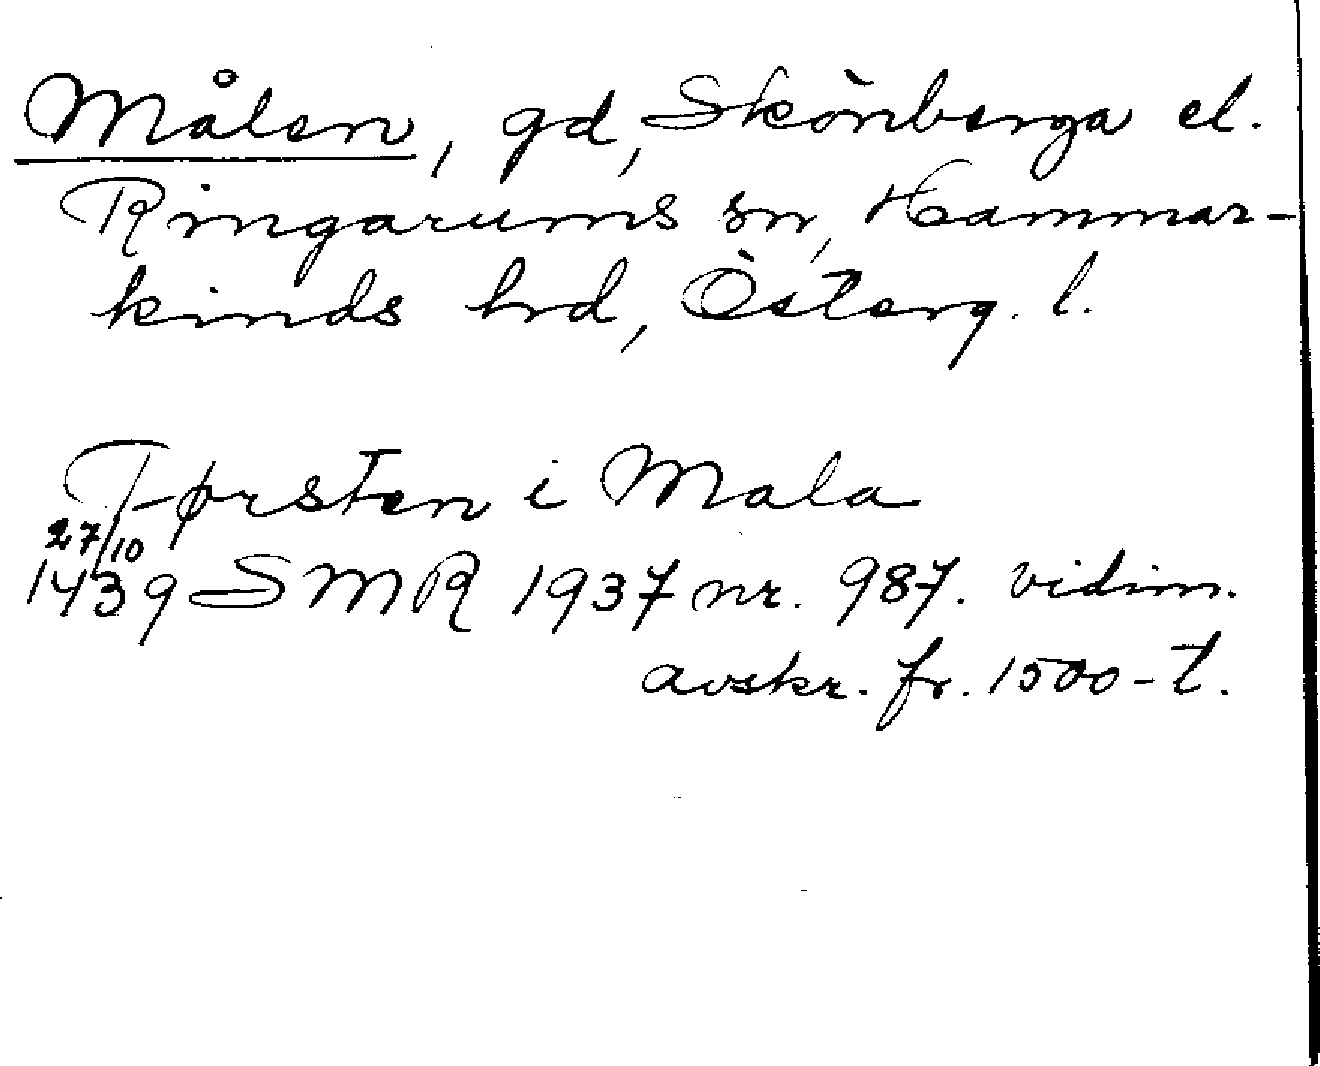 Målen, gd, Skönberga el.
Ringarums sn, Hammar-
kinds hrd, Österg. l.
Tørsten i Mala
27/10
1439 SMR 1937 nr. 987. vidim.
avskr. fr. 1500-t.